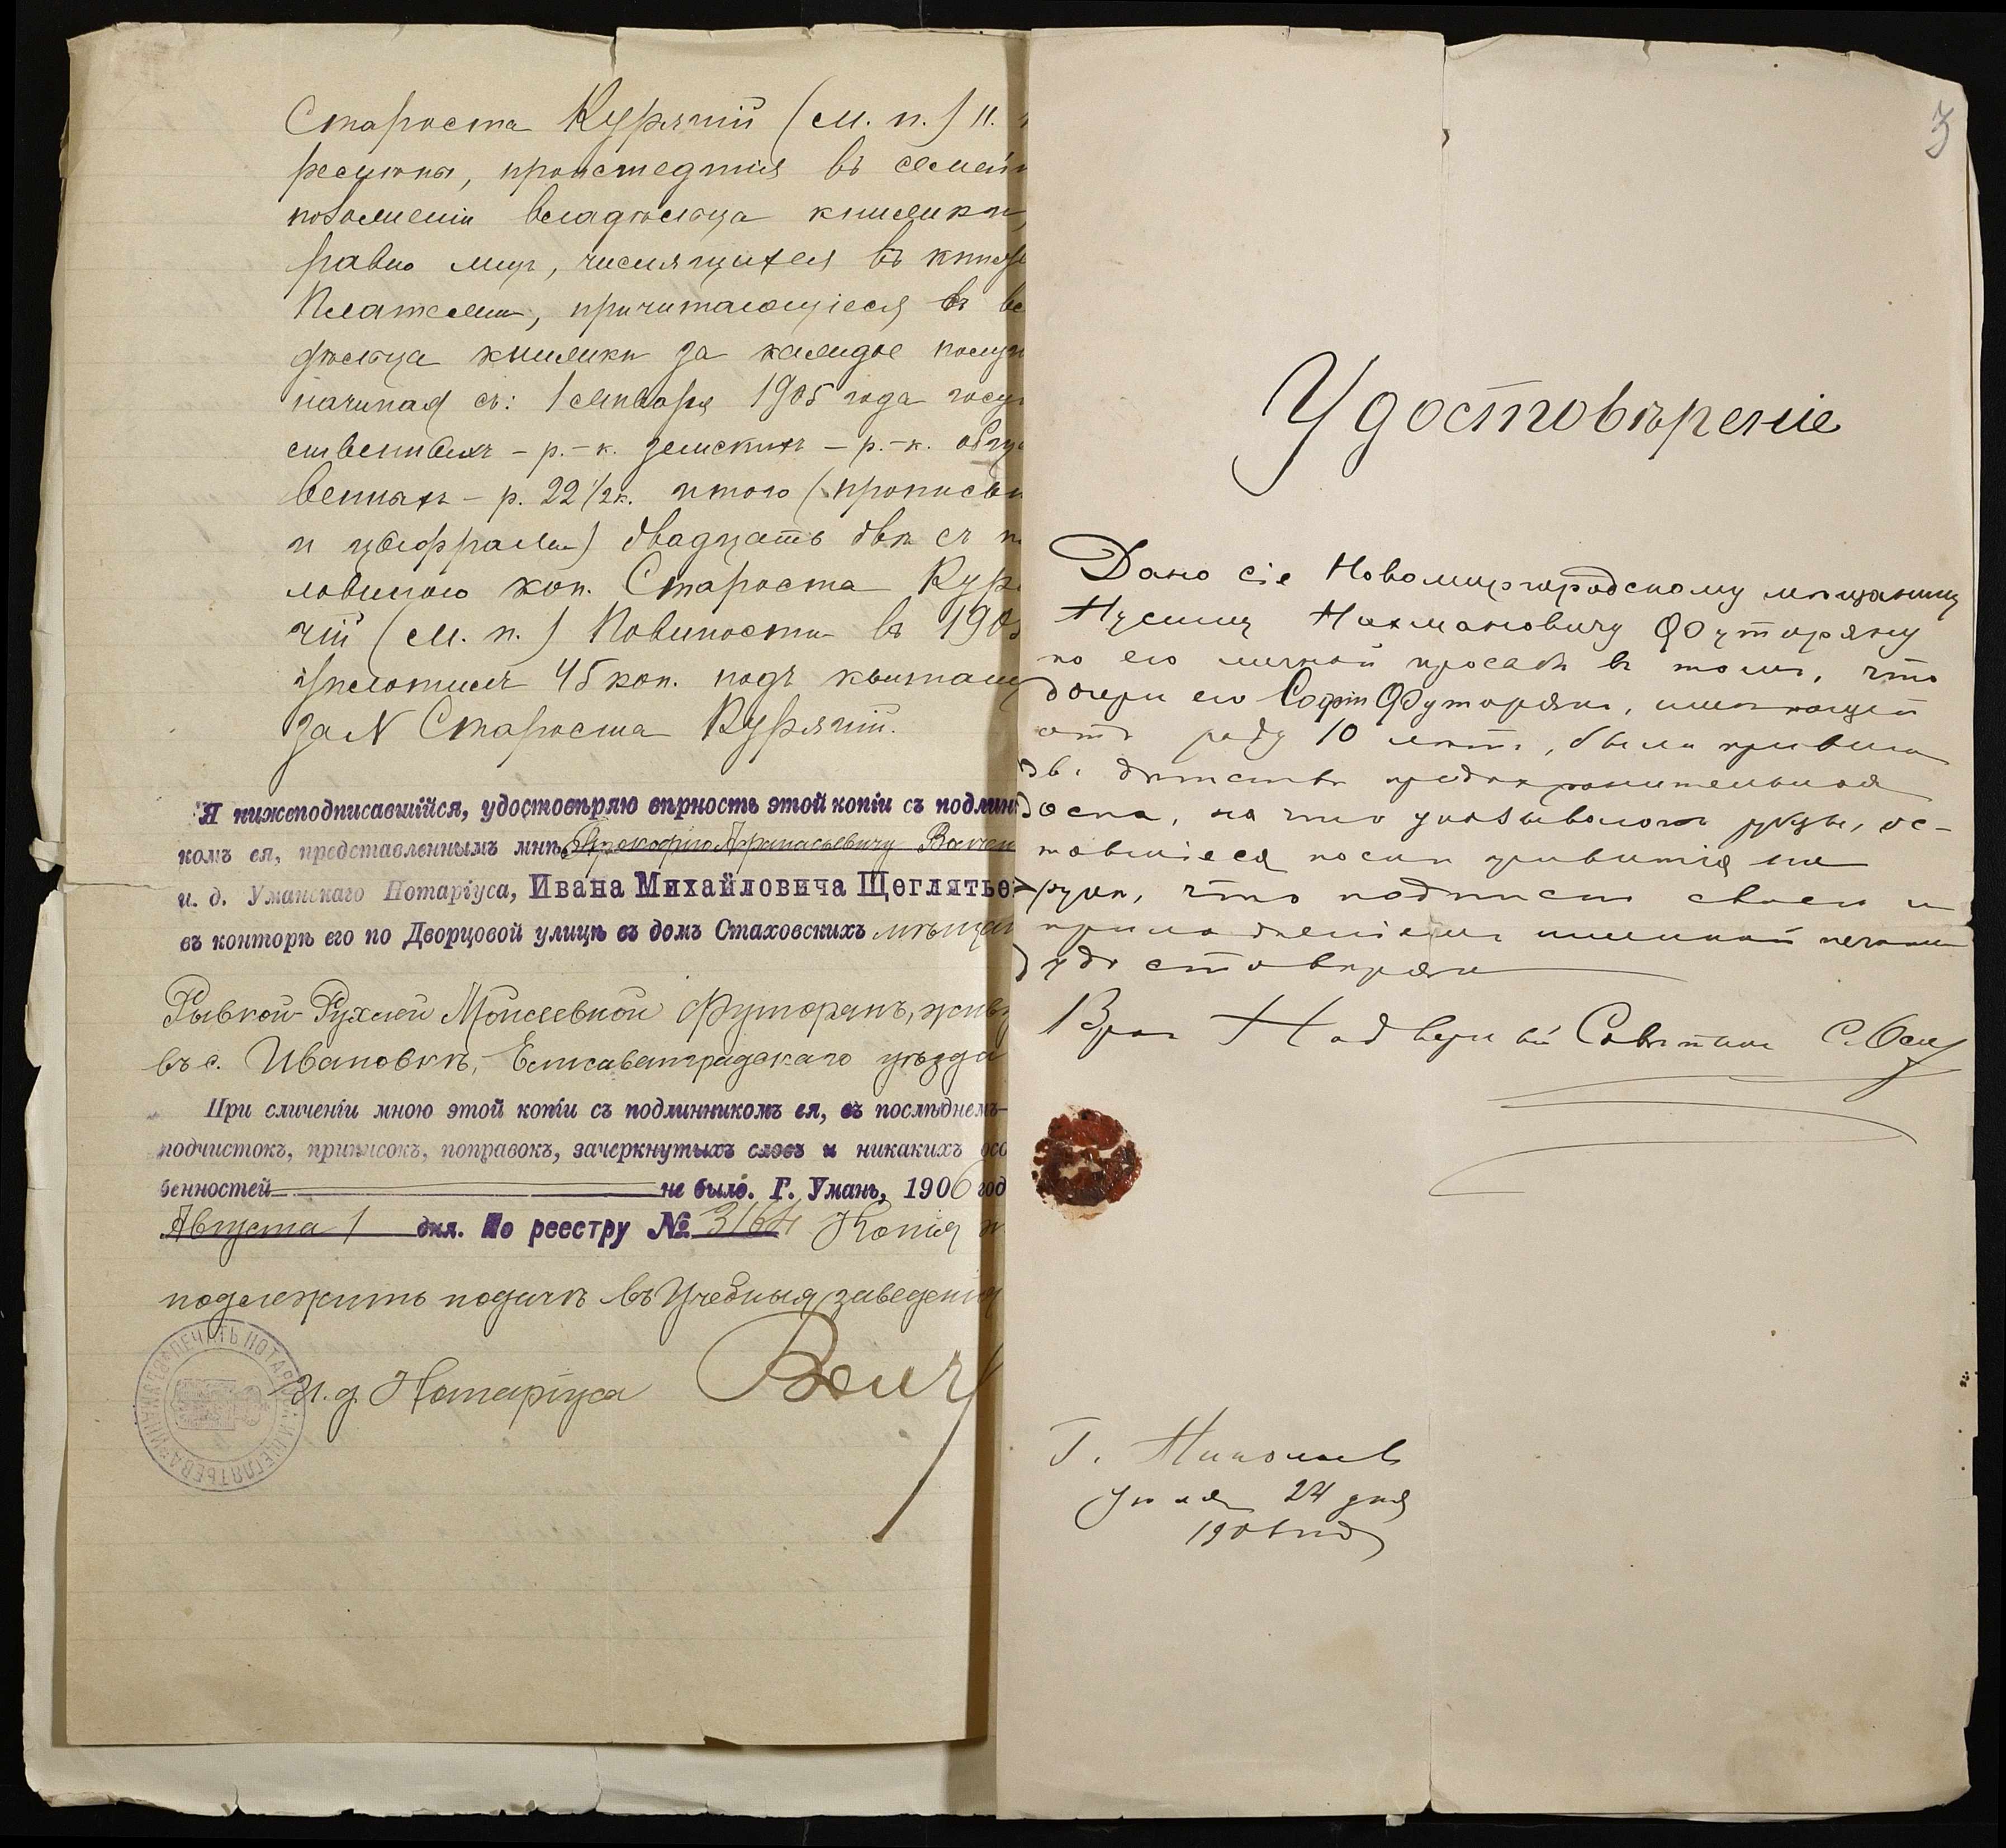 Староста Курячій (м. п.) II.
рессуппы, происшедшія въ семейн
положеніи владѣльца книжки,
равно лицъ, числящихся въ книж
Платежи, причитающіеся въ
дѣльца книжки за каждое полуг
начиная съ: 1 января 1905 года госуд
ственныхъ – р. – к. земскихъ – р. – к. обще
венныхъ – р. 22 1/2 к. итого (прописью
и цыфрами) двадцать двѣ съ по
ловиною коп. Староста Кур
чій (м. п.) Повинности въ 190
уплотилъ 45 коп. подъ квитан
за N Староста Курячій.
Я нижеподписавшійся, удостовѣряю вѣрность этой копіи съ подлин
комъ ея, представленнымъ мнѣ Прокофію Афанасьевичу Волчен
и. д. Уманскаго Нотаріуса, Ивана Михайловича Щеглятьев
въ конторѣ его по Дворцовой улицѣ въ домѣ Стаховскихъ мѣщан
Рывкой-Рухлей Мойсеевной Футорянъ, жив
въ с. Ивановкѣ, Елисаветградскаго уѣзда
При сличеніи мною этой копіи съ подлинникомъ ея, въ послѣднемъ
подчистокъ, приписокъ, поправокъ, зачеркнутыхъ словъ и никакихъ осо
бенностей не было. Г. Умань, 1906 год
Августа 1 дня. По реестру № 3164 Копія
подлежитъ подачѣ въ Учебныя заведенія
И. д. Нотаріуса
3
Удостовѣреніе
Дано сіе Новомиргородскому мѣщанину
Нусину Нахмановичу Футоряну
по его личной просьбѣ въ томъ, что
дочери его Софіи Футорянъ, имѣющей
отъ роду 10 лѣтъ, была привита
въ дѣтствѣ предохранительная
оспа, на что указываютъ рубцы, ос-
тавшіеся послѣ прививтія на
рукѣ, что подписью своею и
приложеніемъ именной печати
удостовѣряю
Врач Надворный Совѣтник С.
Г. Николаев
Іюля 24 дня
1906 год